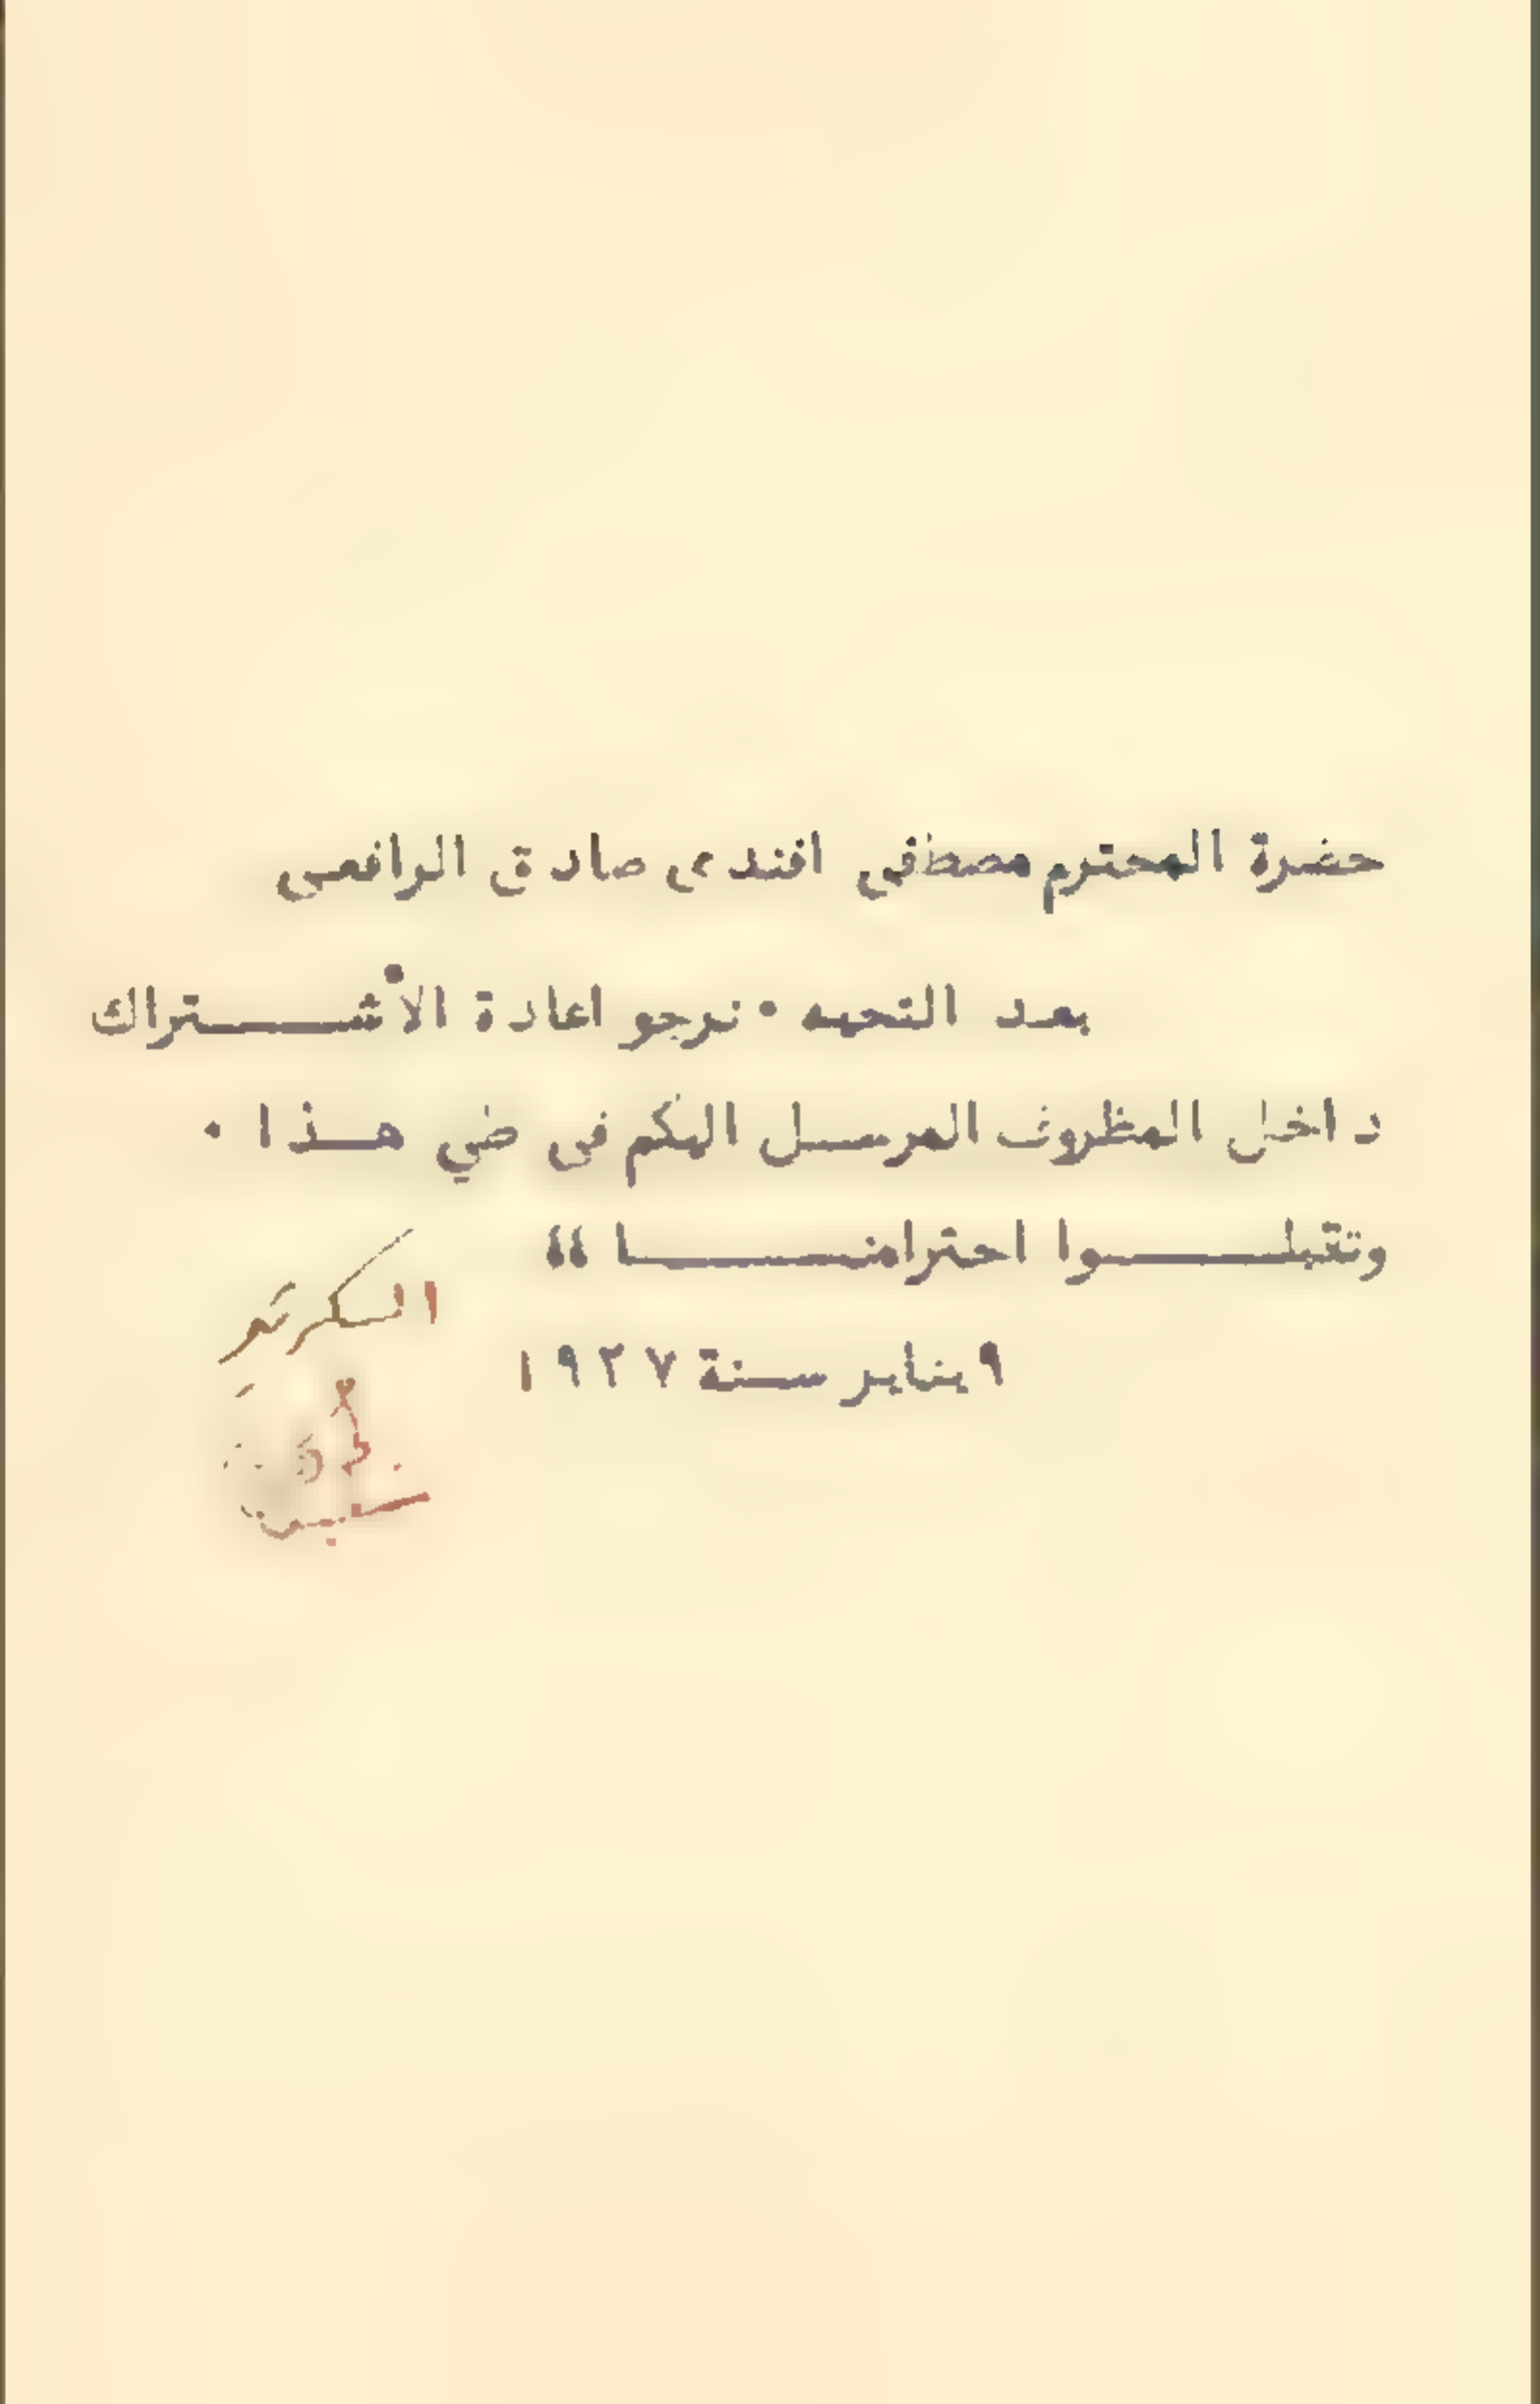 حضرة المحترم مصطفى افندى صادق الرافعى
بعد التحيه ٠ نرجو اعادة الأشتراك
داخل المظروف المرسل اليكم فى طي هذا ٠
وتقبلوا احترامنا "
٩ يناير سنة ١٩٢٧
السكرتير